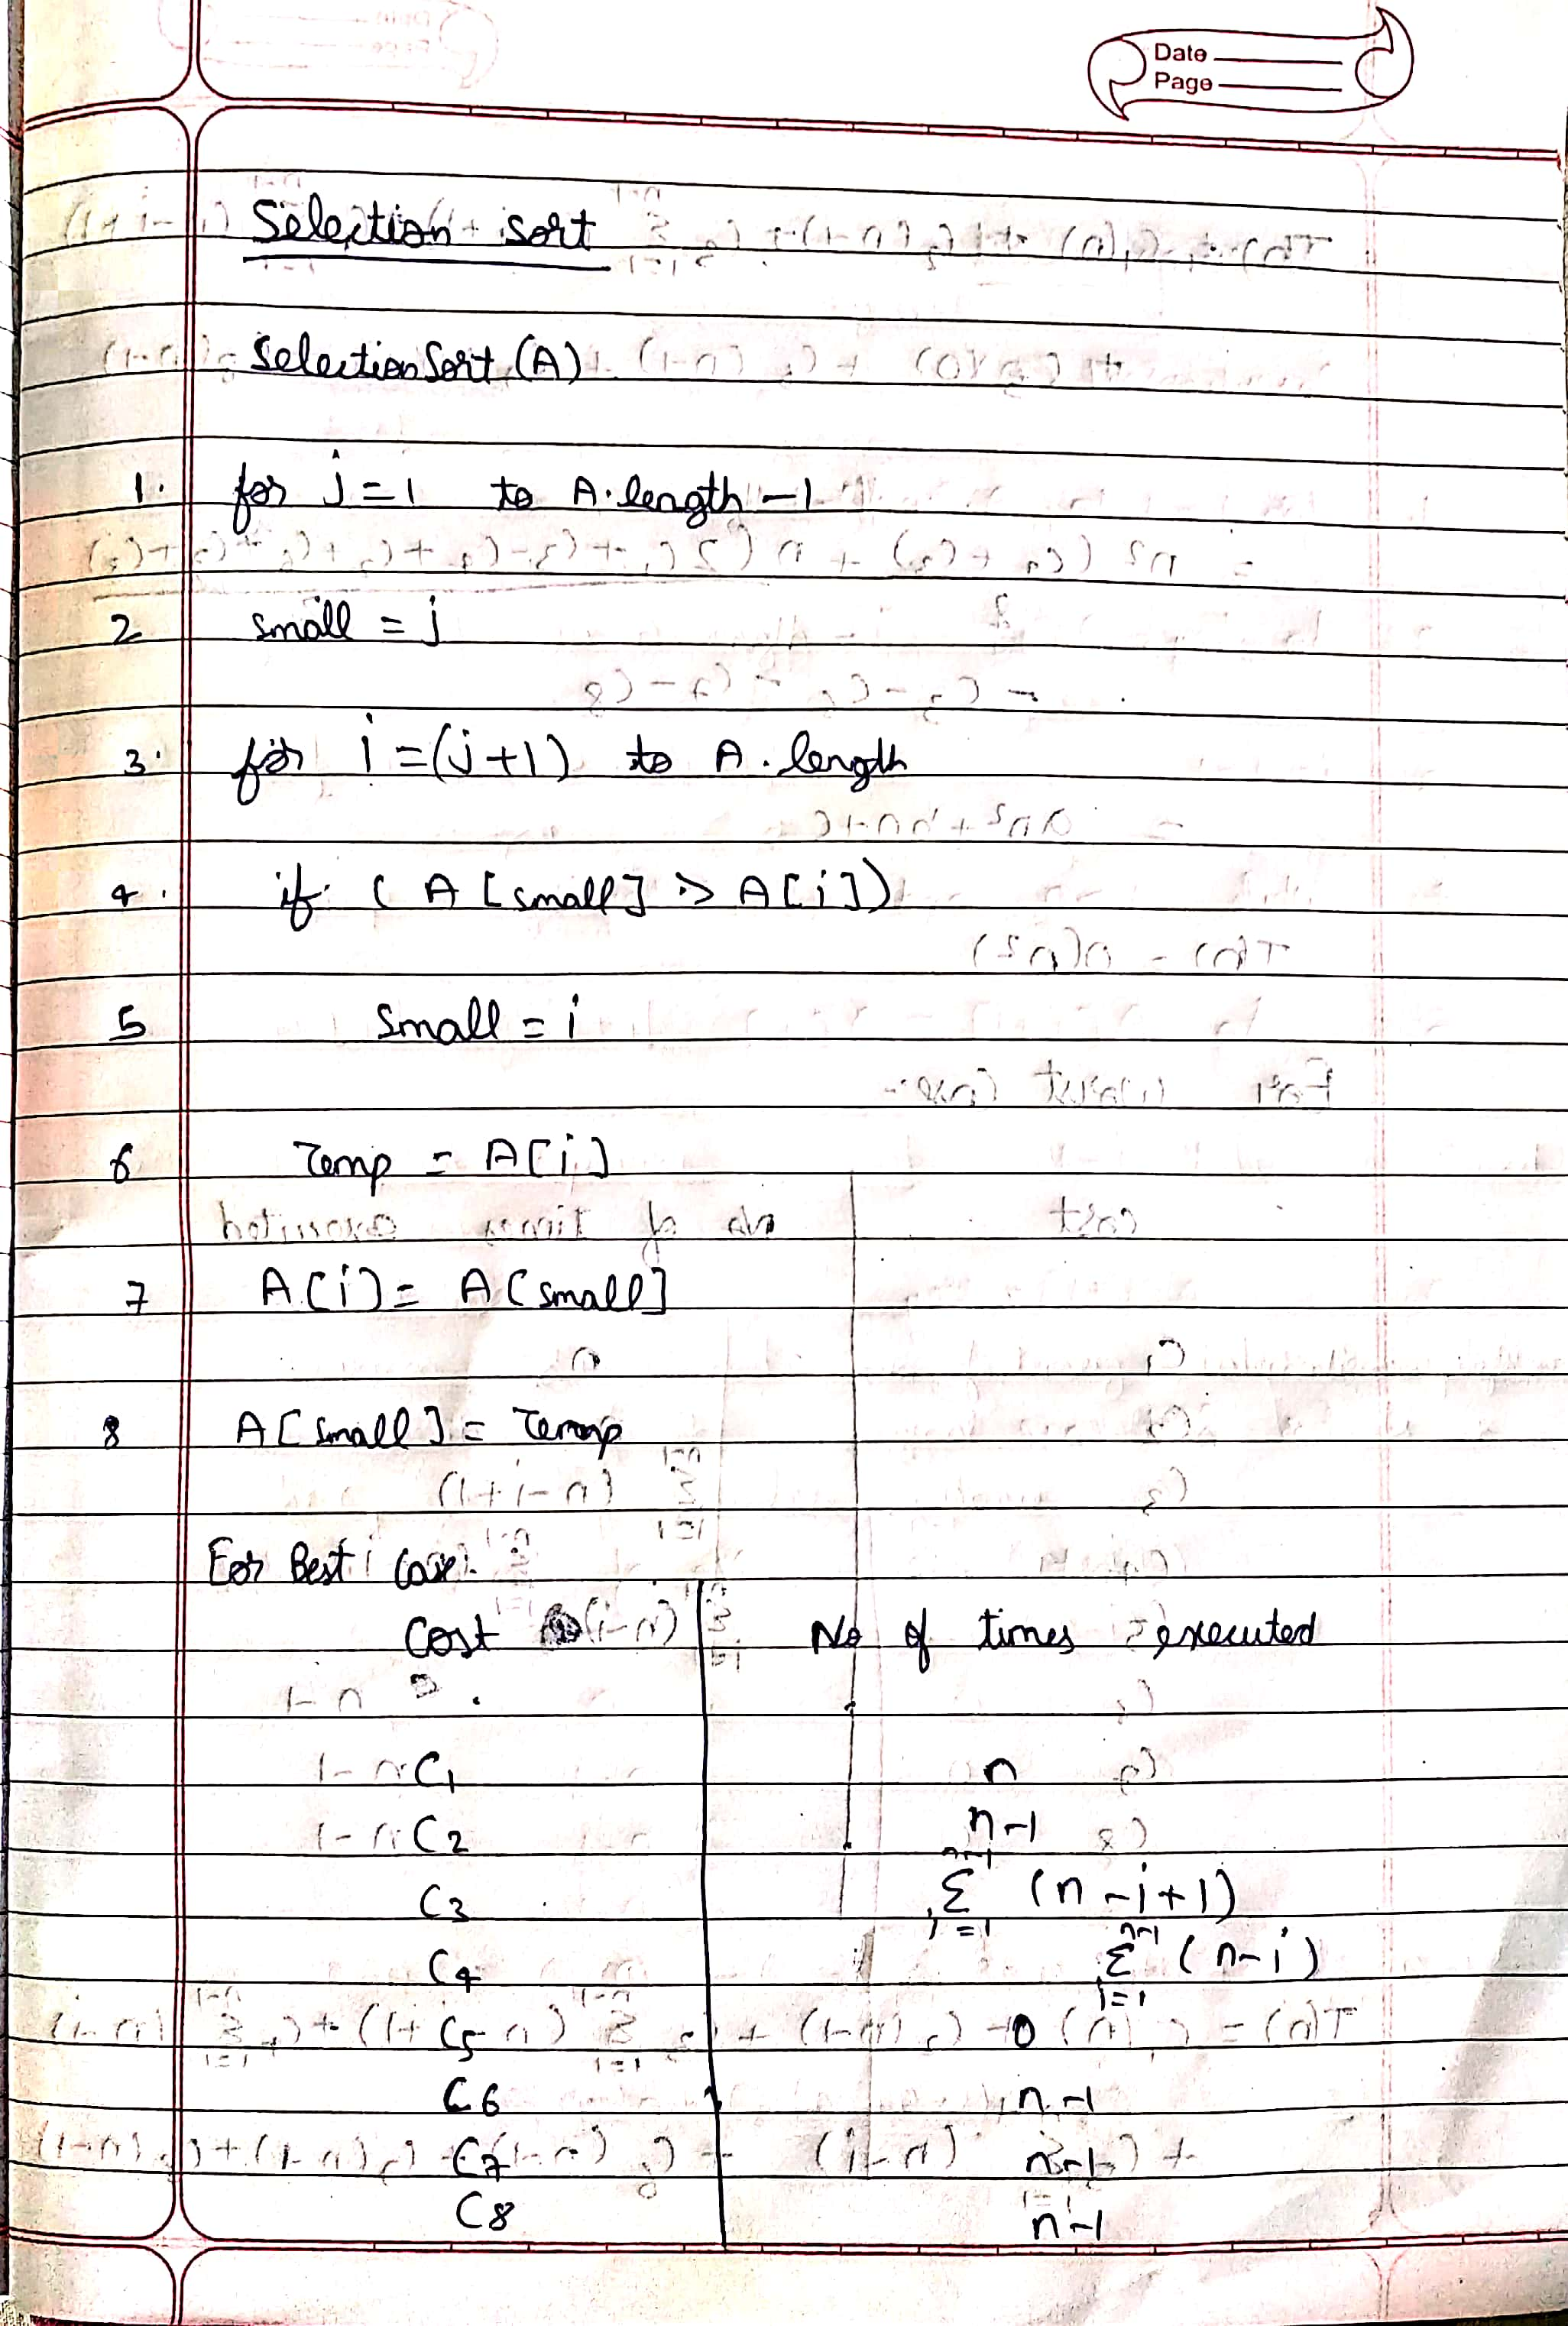 Date
Page
Selection sort
SelectionSort (A)
1. for j=1 to A.length -1
2 small = j
3. for i=(j+1) to A.length
4. if ( A[small] > A[i])
5 small = i
6 Temp = A[i]
7 A[i] = A[small]
8 A[small] = Temp
For Best Case:
Cost No of times executed
C1 n
C2 n-1
C3 n-1 Σ j=1 (n-j+1)
C4 n-1 Σ j=1 (n-i)
C5 0
C6 n-1
C7 n-1
C8 n-1